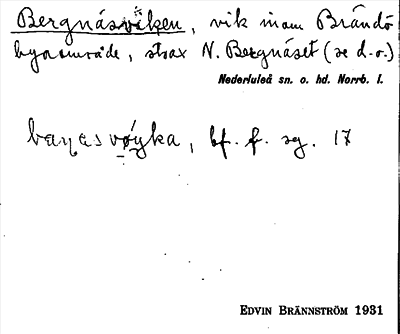 Bergnäsviken, vik inom Brändö
byaområde, strax N. Bergnäset (se d.o.)
Nederluleå sn. o. hd. Norrb. l.
bf. f. sg. 17
EDVIN BRÄNNSTRÖM 1931